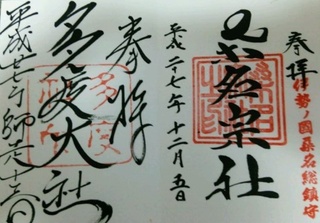 奉拝
伊勢ノ國桑名総鎮守
桑名宗社
平成二十七年十二月五日
奉拝
多度大社
平成廿七年師走